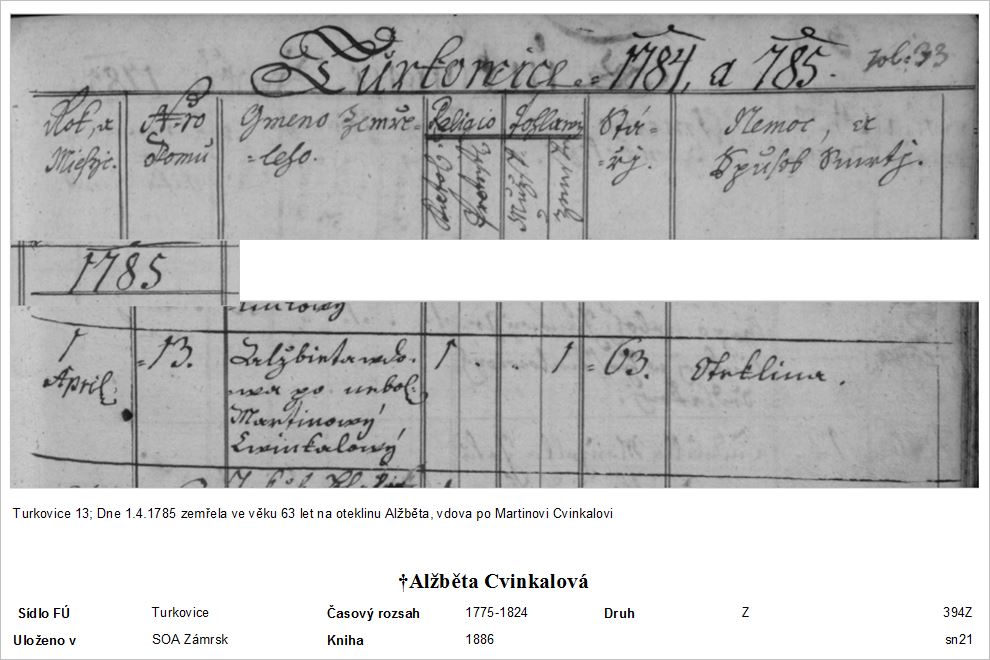 Turkowice = 1784, a 785. fol: 33
Rok, a
Miesyc.
N-ro
Domu
Gmeno Zemře-
-leho.
Religio
Pohlawy
Mužs.
Žensky
Stá-
-řj.
Nemoc, a
Spusob Smrtj.
1785
1
April
=13.
Ealžbieta wdo-
wa po nebol.
Martinowý
Cwinkalowý
1 . . 1
=63.
Oteklina.
Turkovice 13; Dne 1.4.1785 zemřela ve věku 63 let na oteklinu Alžběta, vdova po Martinovi Cvinkalovi
†Alžběta Cvinkalová
Sídlo FÚ Turkovice Časový rozsah 1775-1824 Druh Z 394Z
Uloženo v SOA Zámrsk Kniha 1886 sn21